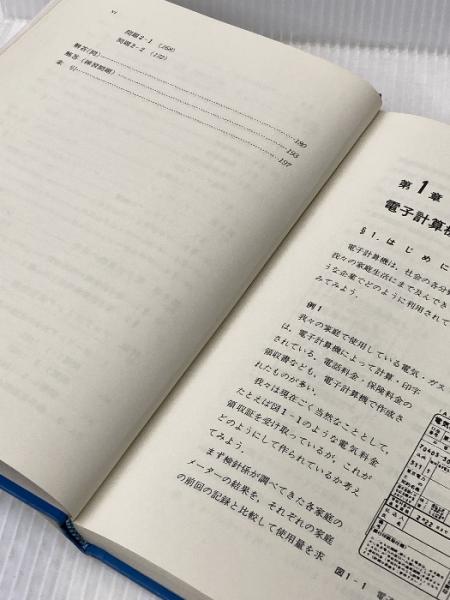 vi
問題2-1 (168)
問題2-2 (172)
解答(問)……………………………180
解答(練習問題)……………………………193
索 引……………………………197
第1章
電子計算機
§1.はじめに
電子計算機は，社会の各分
我々の家庭生活にまで及んでき
うな企業でどのように利用されて
みてみよう．
例1
我々の家庭で使用している電気・ガス
は，電子計算機によって計算・印字
されている．電話料金・保険料金の
領収書なども，電子計算機で作成さ
れたものが多い．
我々は現在ごく当然なこととして，
たとえば図1-1のような電気料金
領収証を受け取っているが，これが
どのようにして作られているか考え
てみよう．
まず検針係が調べてきた各家庭の
メーターの結果を，それぞれの家庭
の前回の記録と比較して使用量を求
図1-1 電